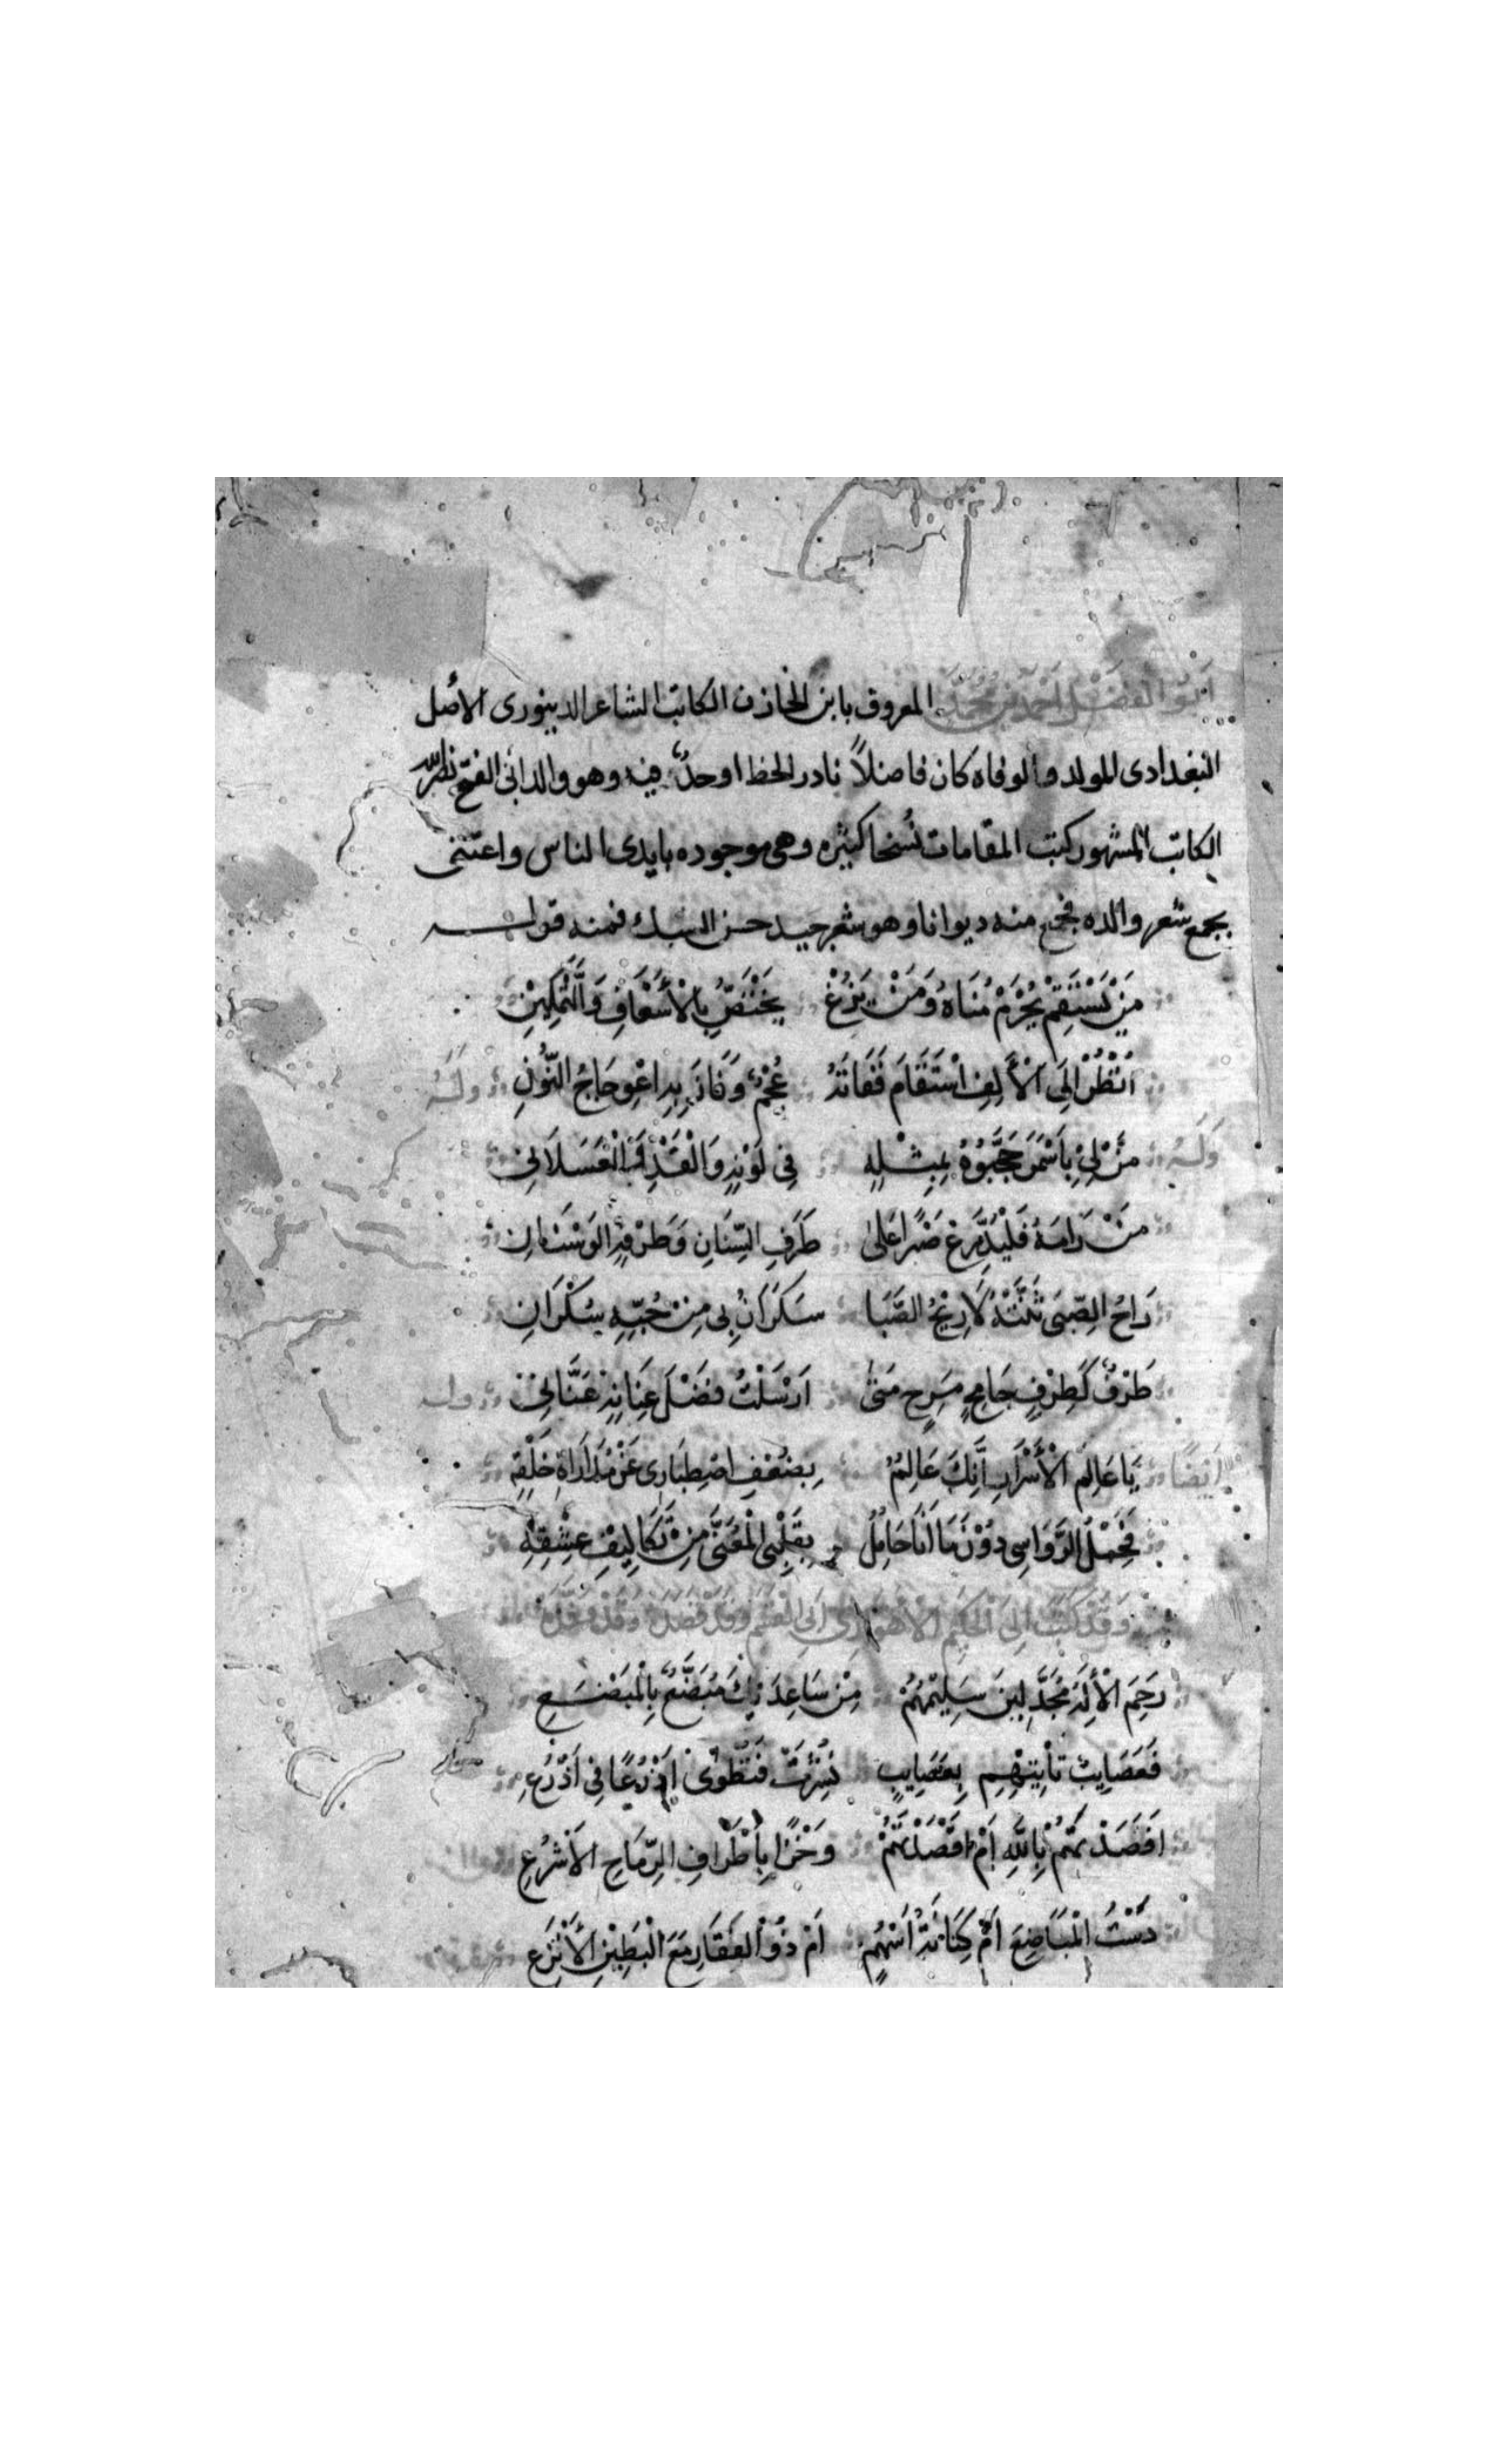 أبو الفضل أحمد بن محمد المعروف بابن الخازن الكاتب الشاعر الدينورى الأصل
البغدادى المولد والوفاه كان فاضلاً نادر الخط اوحدٌ فيه وهو والد ابى الفتح نصرالله
الكاتب المشهور كتب المقامات نُسخا كثيره وهى موجوده بايدى الناس واعتنى
بجمع شعر والده فجمع منه ديوانا وهو شعر جيد حسن السبك فمنه قوله
مَنْ يَسْتَقِمْ يُحْرَمْ مُنَاهُ وَمَنْ يَزُغْ يَخْتَصُّ بِالْأَسْعَافِ وَالتَّمْكِينِ
اُنْظُرْ اِلَى الْأَلِفِ اسْتَقَامَ فَفَاتَهُ عُجْمٌ وَفَازَ بِهِ اعْوِجَاجُ النُّونِ وله
وَلَهُ مَنْ لِىْ بِاَسْمَرَ حَجَّبُوْهُ بِمِثْلِهِ فِى لَوْنِهِ وَالْقَدِّ وَالْعَسَلَانِ
مَنْ رَامَهُ فَلْيَدَّرِعْ صَبْرًا عَلَى طَرَفِ السِّنَانِ وَطَرْفِهِ الوَسْنَانِ
رَاحُ الصِّبَى ثَنَتْهُ لَا رِيْحُ الصَّبَا سَكْرَانُ بِى مِنْ حُبِّهِ سُكْرَانِ
طَرْفٌ كَطِرْفٍ جَامِحٍ مَرِحٍ مَتَى اَرْسَلْتُ فَضْلَ عِنَانِهِ عَنَّانِىْ وله
ايضًا يَا عَالِمَ الْأَسْرَارِ اِنَّكَ عَالِمٌ بِضَعْفِ اصْطِبَارِى عَنْ مُدَارَاةِ خَلْقِهِ
فَحَمْلُ الرَّوَاسِى دُوْنَ مَا اَنَا حَامِلٌ بِقَلْبِى الْمُعَنَّى مِنْ تَكَالِيْفِ عِشْقِهِ
وَقَدْ كَتَبَ اِلَى الْحَكِيْمِ الْأَهْوَازِى اَبِى الْقَسَمِ وَقَدْ فَصَدَهُ
رَحِمَ الْأِلَهُ مُجَدَّلِينَ سَلِيْمُهُمْ مِنْ سَاعِدَيْكَ مُبَضَّعٌ بِالْمِبْضَعِ
فَعَصَايِبٌ تَأْتِيْهِمِ بِعَصَايِبٍ نُشِرَتْ فَتُطْوَى اَذْرُعًا فِى اَذْرُعِ
اَفَصَدْتَهُمْ بِاللّٰهِ اَمْ اَقْصَدْتَهُمْ وَخْزًا بِأَطْرَافِ الرِّمَاحِ الْاَشْرُعِ
دَسْتُ الْمَبَاضِعِ اَمْ كِنَانَةُ اَسْهُمٍ اَمْ ذُوْ الْفَقَارِ مَعَ الْبَطِيْنِ الْأَنْزَعِ